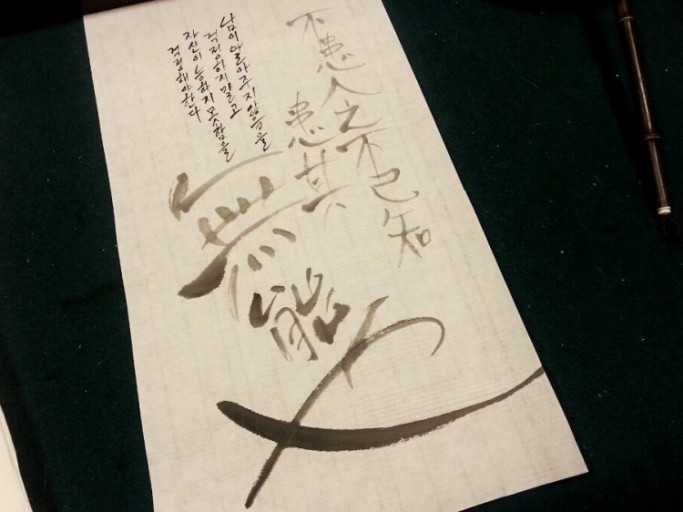 不患人之不己知
患其無能也
남이 알아주지 않음을
걱정하지 말고
자신이 능하지 못함을
걱정해야한다